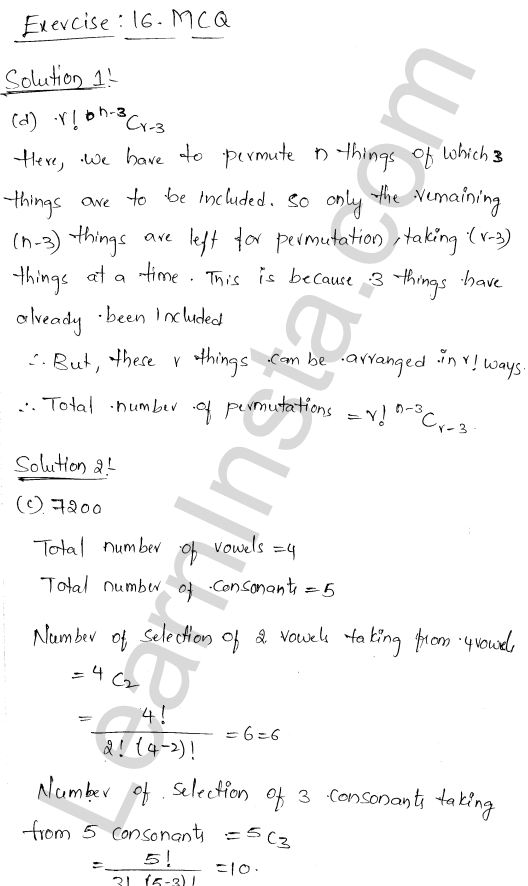 Exercise: 16. MCQ
Solution 1:-
(d) r! n-3Cr-3
Here, we have to permute n things of which 3
things are to be included. So only the remaining
(n-3) things are left for permutation, taking (r-3)
things at a time. This is because 3 things have
already been included
∴ But, these r things can be arranged in r! ways.
∴ Total number of permutations = r! n-3Cr-3.
Solution 2:-
(c) 7200
Total number of vowels =4
Total number of consonants = 5
Number of selection of 2 vowels taking from 4 vowels
= 4C2
= 4! / 2! (4-2)! = 6 = 6
Number of selection of 3 consonants taking
from 5 consonants = 5C3
= 5! / 3! (5-3)! = 10.
LearnInsta.com